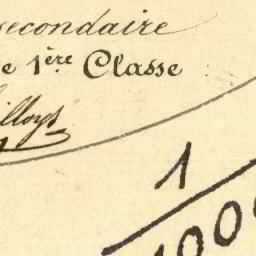 secondaire
e 1ère Classe
illoys
1
1000